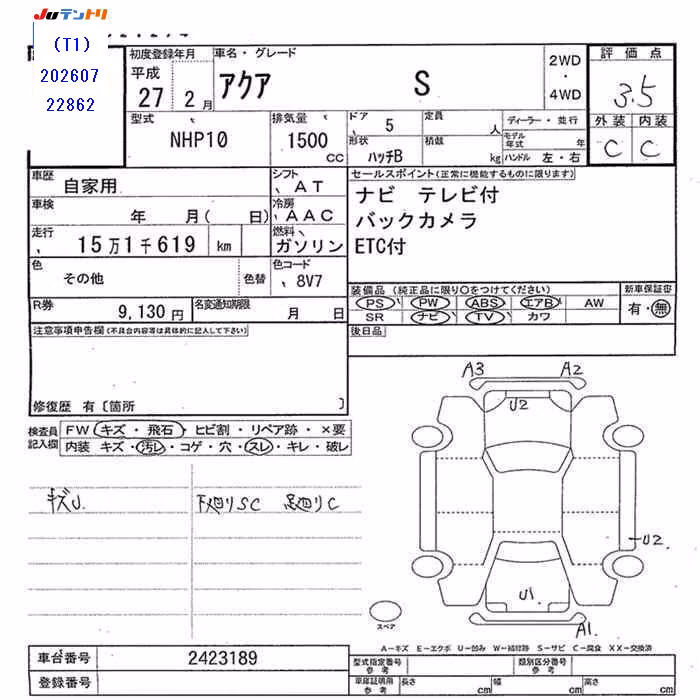 JUテントリ
(T1)
202607
22862
初度登録年月
平成
27 2 月
車名・グレード
アクア S
2WD
・
4WD
評価点
3.5
外装 内装
C C
型式
NHP10
排気量
1500
CC
ドア
5
定員
人
形状
ハッチB
積載
kg
ディーラー・並行
モデル年式 年
ハンドル 左・右
車歴
自家用
シフト
AT
車検
年 月( 日)
冷房
AAC
走行
15万1千619 km
燃料
ガソリン
色
その他
色替
色コード
8V7
R券
9,130円
名変通知期限
月 日
セールスポイント(正常に機能するものに限ります)
ナビ テレビ付
バックカメラ
ETC付
装備品(純正品に限り○をつけてください)
PS PW ABS エアB AW
SR ナビ TV カワ
新車保証書
有・無
後日品
注意事項申告欄(不具合内容等は具体的に記入して下さい)
修復歴 有〔箇所 〕
検査員記入欄
FW キズ・飛石・ヒビ割・リペア跡・×要
内装 キズ・汚レ・コゲ・穴・スレ・キレ・破レ
キズU
下廻りSC 足廻りC
A3 A2
U2
U2
U1
A1
スペア
A-キズ E-エクボ U-凹み W-補修跡 S-サビ C-腐食 XX-交換済
車台番号
2423189
登録番号
型式指定番号
参考
類別区分番号
参考
車庫証明用
参考
長さ cm
幅 cm
高さ cm